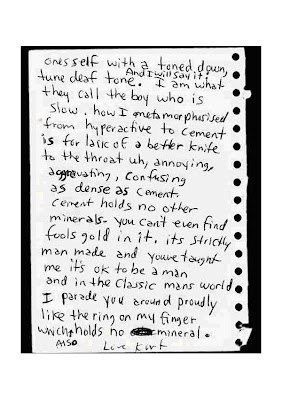 ones self with a toned down,
tune deaf tone. And I will say it! I am what
they call the boy who is
slow. how I metamorphosised
from hyperactive to cement
is for lack of a better knife
to the throat uh, annoying,
aggravating, confusing
as dense as cement.
cement holds no other
minerals. you can't even find
fools gold in it. its strictly
man made and youve taught
me it's ok to be a man
and in the classic mans world
I parade you around proudly
like the ring on my finger
which also holds no mineral.
Love Kurt